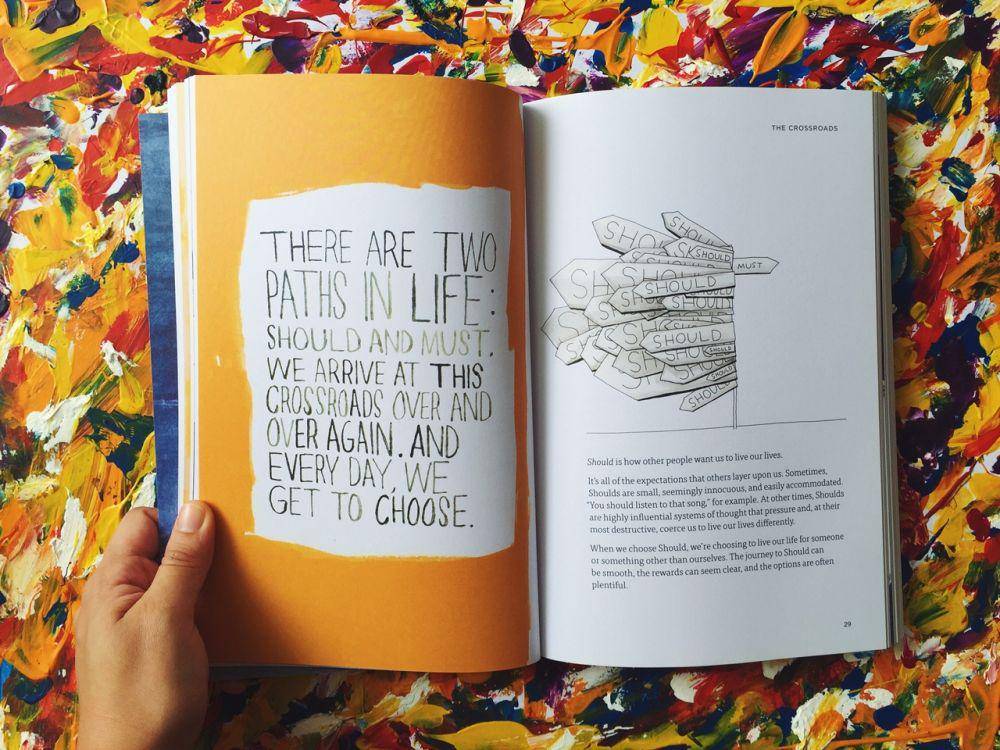 THERE ARE TWO
PATHS IN LIFE:
SHOULD AND MUST.
WE ARRIVE AT THIS
CROSSROADS OVER AND
OVER AGAIN. AND
EVERY DAY, WE
GET TO CHOOSE.
THE CROSSROADS
SHOULD
SHOULD
MUST
SHOULD
SHOULD
SHOULD
SHOULD
SHOULD
SHOULD
Should is how other people want us to live our lives.
It's all of the expectations that others layer upon us. Sometimes,
Shoulds are small, seemingly innocuous, and easily accommodated.
"You should listen to that song," for example. At other times, Shoulds
are highly influential systems of thought that pressure and, at their
most destructive, coerce us to live our lives differently.
When we choose Should, we're choosing to live our life for someone
or something other than ourselves. The journey to Should can
be smooth, the rewards can seem clear, and the options are often
plentiful.
29